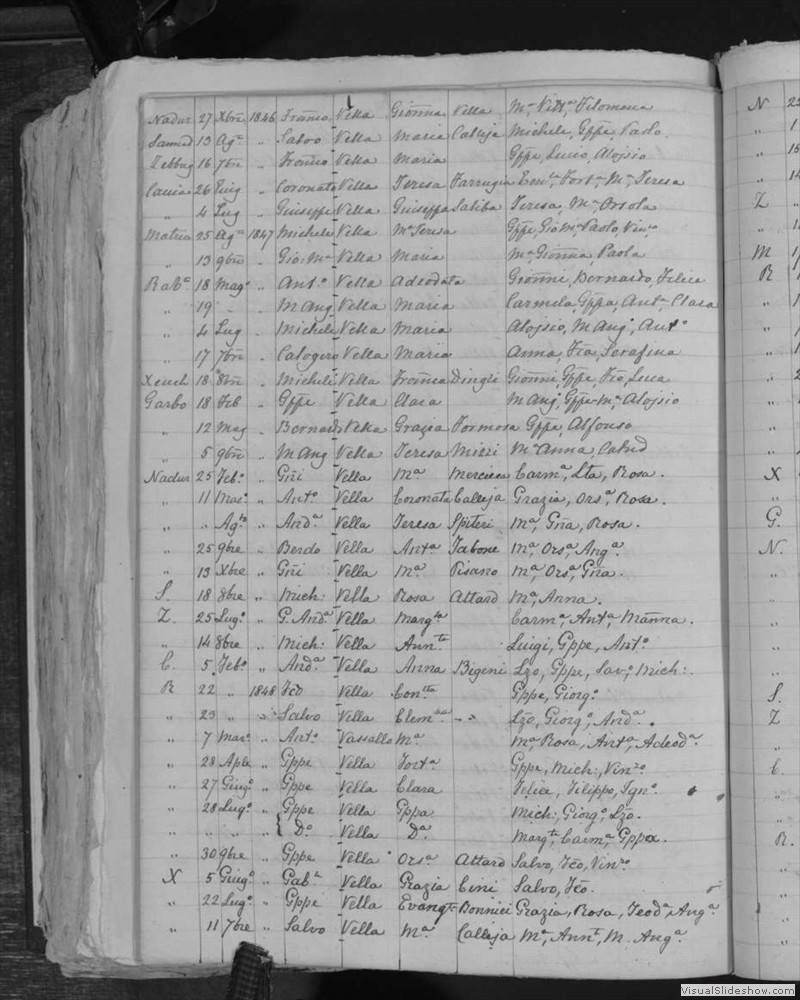 Nadur 27 Xbre 1846 Franco Vella Gionna Vella Ma Vitta Filomena
Samed 13 Aga „ Salvo Vella Maria Calleja Michele, Gppe, Paolo
Zebbug 16 7bre „ Franco Vella Maria Gppe, Lucio, Aloisio
Cauia 26 „ Coronato Vella Teresa Farrugia Emla, Forta, Ma, Teresa
„ 4 Lug „ Giuseppe Vella Giuseppa Saliba Teresa, Ma, Orsola
Matrice 25 Aga 1847 Michele Vella Ma Teresa Gppe, Gio Ma Paolo, Vinco
„ 13 9bre „ Gio: Ma Vella Maria Ma Gionna Paola
Raba 18 Mago „ Anto Vella Adeodata Gionni, Bernardo, Felice
„ 19 „ „ M Ang Vella Maria Carmela, Gppa, Anta, Clara
„ 4 Lug „ Michele Vella Maria Aloisio, M Ango, Anto
„ 17 7bre „ Calogero Vella Maria Anna, Fca, Serafina
Xeuch 18 8bre „ Michele Vella Franca Dingli Gionni, Gppe, Fco, Luca
Garbo 18 Feb „ Gppe Vella Clara M Ang, Gppe Ma, Aloisio
„ 12 Mag „ Bernardo Vella Grazia Formosa Gppa, Alfonso
„ 5 9bre „ M Ang Vella Teresa Mizzi Ma Anna,
Nadur 25 Febo „ Gni Vella Ma Mercieca Carma, Lta, Rosa.
„ 11 Maro „ Anto Vella Coronata Calleja Grazia, Orsa, Rosa.
„ „ Agto „ Anda Vella Teresa Spiteri Ma, Gna, Rosa.
„ 25 9bre „ Berdo Vella Anta Tabone Ma, Orsa, Anga.
„ 13 Xbre „ Gni Vella Ma Pisano Ma, Orsa, Gna.
S. 18 8bre „ Mich: Vella Rosa Attard Ma, Anna.
Z. 25 Lugo „ G. Anda Vella Margta Carma, Anta, Manna.
„ 14 8bre „ Mich: Vella Annta Luigi, Gppe, Anto.
C. 5 Febo „ Anda Vella Anna Bigeni Lzo, Gppe, Savo, Mich:.
R 22 „ 1848 Fco Vella Conta Gppe, Giorgo.
„ 23 „ „ Salvo Vella „ Lzo, Giorgo, Anda.
„ 7 Maro „ Anto Vassallo Ma Ma Rosa, Anta, Adeoda.
„ 28 Aple „ Gppe Vella Forta Gppe, Mich:, Vinzo
„ 27 Giugo „ Gppe Vella Clara Felice, Filippo, Igno.
„ 28 Lugo „ Gppe Vella Gppa Mich:, Giorgo, Lzo.
„ „ „ „ Do Vella Da Margta, Carma, Gppa.
„ 30 9bre „ Gppe Vella Orsa Attard Salvo, Fco, Vinzo
X 5 Giugo „ Gabe Vella Grazia Cini Salvo, Fco.
„ 22 Lugo „ Gppe Vella Evangta Bonnici Grazia, Rosa, Teoda, Anga.
„ 11 7bre „ Salvo Vella Ma Calleja Ma, Annt, M. Anga.
N 22
Z
M
R
X
G.
N.
S.
Z
C.
R.
VisualSlideshow.com